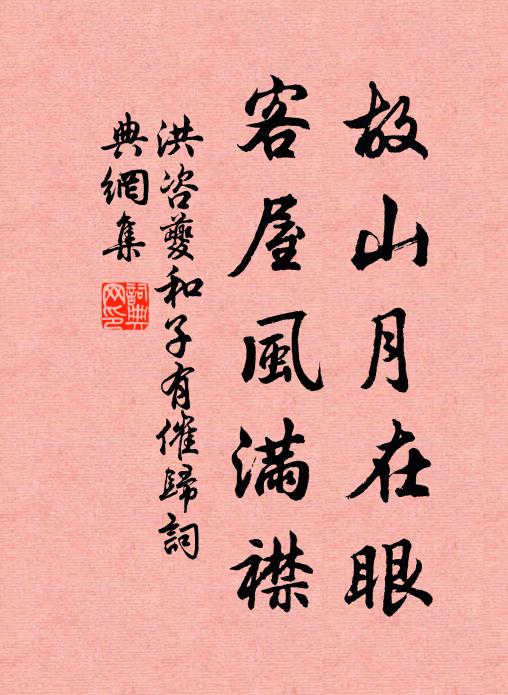 故山月在眼
客屋風滿襟
洪咨夔和子有催歸詞
典網集
詞典網印